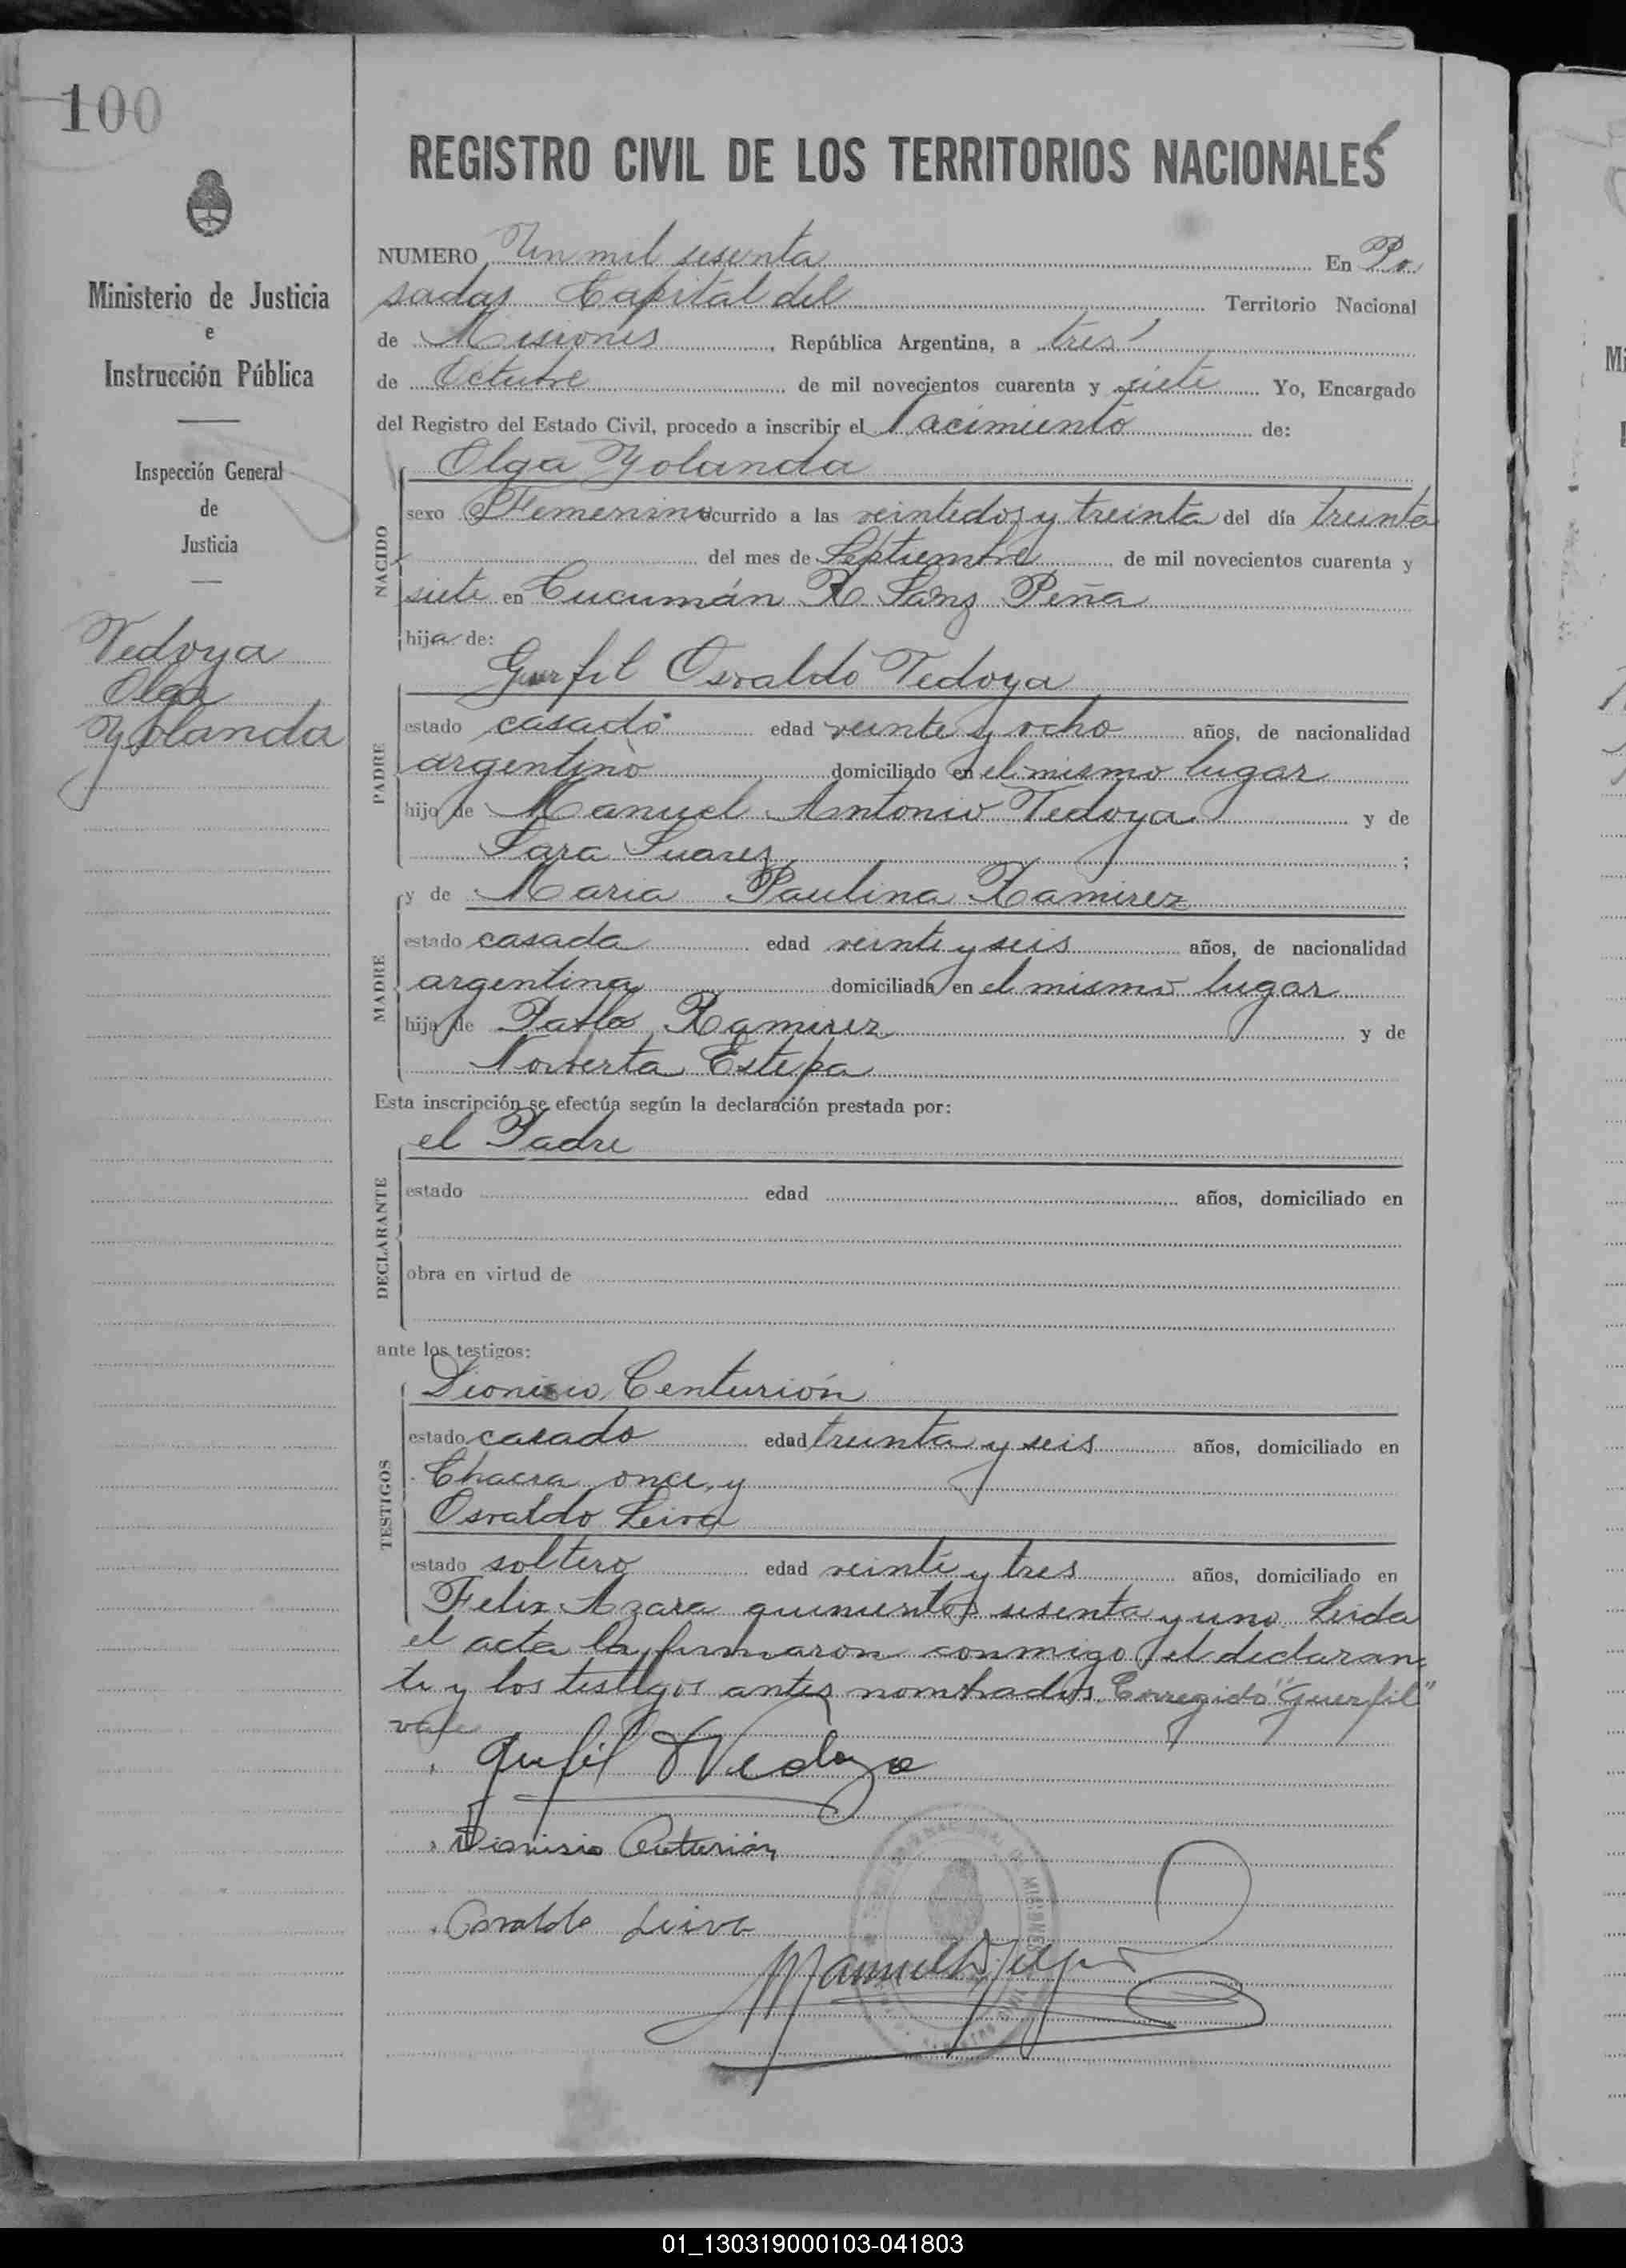 100
REGISTRO CIVIL DE LOS TERRITORIOS NACIONALES
Ministerio de Justicia
e
Instrucción Pública
Inspección General
de
Justicia
Vedoya
Olga
Yolanda
NUMERO Un mil sesenta En Po
sadas Capital del Territorio Nacional
de Misiones, República Argentina, a tres
de Octubre de mil novecientos cuarenta y siete Yo, Encargado
del Registro del Estado Civil, procedo a inscribir el Nacimiento de:
Olga Yolanda
NACIDO
sexo Femenino ocurrido a las veintidos y treinta del día treinta
del mes de Septiembre de mil novecientos cuarenta y
siete en Tucumán R. Sanz Peña
hija de:
Guerfil Osvaldo Vedoya
PADRE
estado casado edad veinte y ocho años, de nacionalidad
argentino domiciliado en el mismo lugar
hijo de Manuel Antonio Vedoya y de
Sara Suarez ;
y de Maria Paulina Ramirez
MADRE
estado casada edad veinte y seis años, de nacionalidad
argentina domiciliada en el mismo lugar
hija de Pablo Ramirez y de
Norberta Estepa
Esta inscripción se efectúa según la declaración prestada por:
el Padre
DECLARANTE
estado edad años, domiciliado en
obra en virtud de
ante los testigos:
Dionisio Centurión
TESTIGOS
estado casado edad treinta y seis años, domiciliado en
Chacra once, y
Osvaldo Leiva
estado soltero edad veinte y tres años, domiciliado en
Felix Azara quinientos sesenta y uno. Leida
el acta la firmaron conmigo el declaran
te y los testigos antes nombrados. Corregido "Guerfil"
vale
Gurfil O Vedoya
Dionisio Centurión
Osvaldo Leiva
MISIONES
01_130319000103-041803